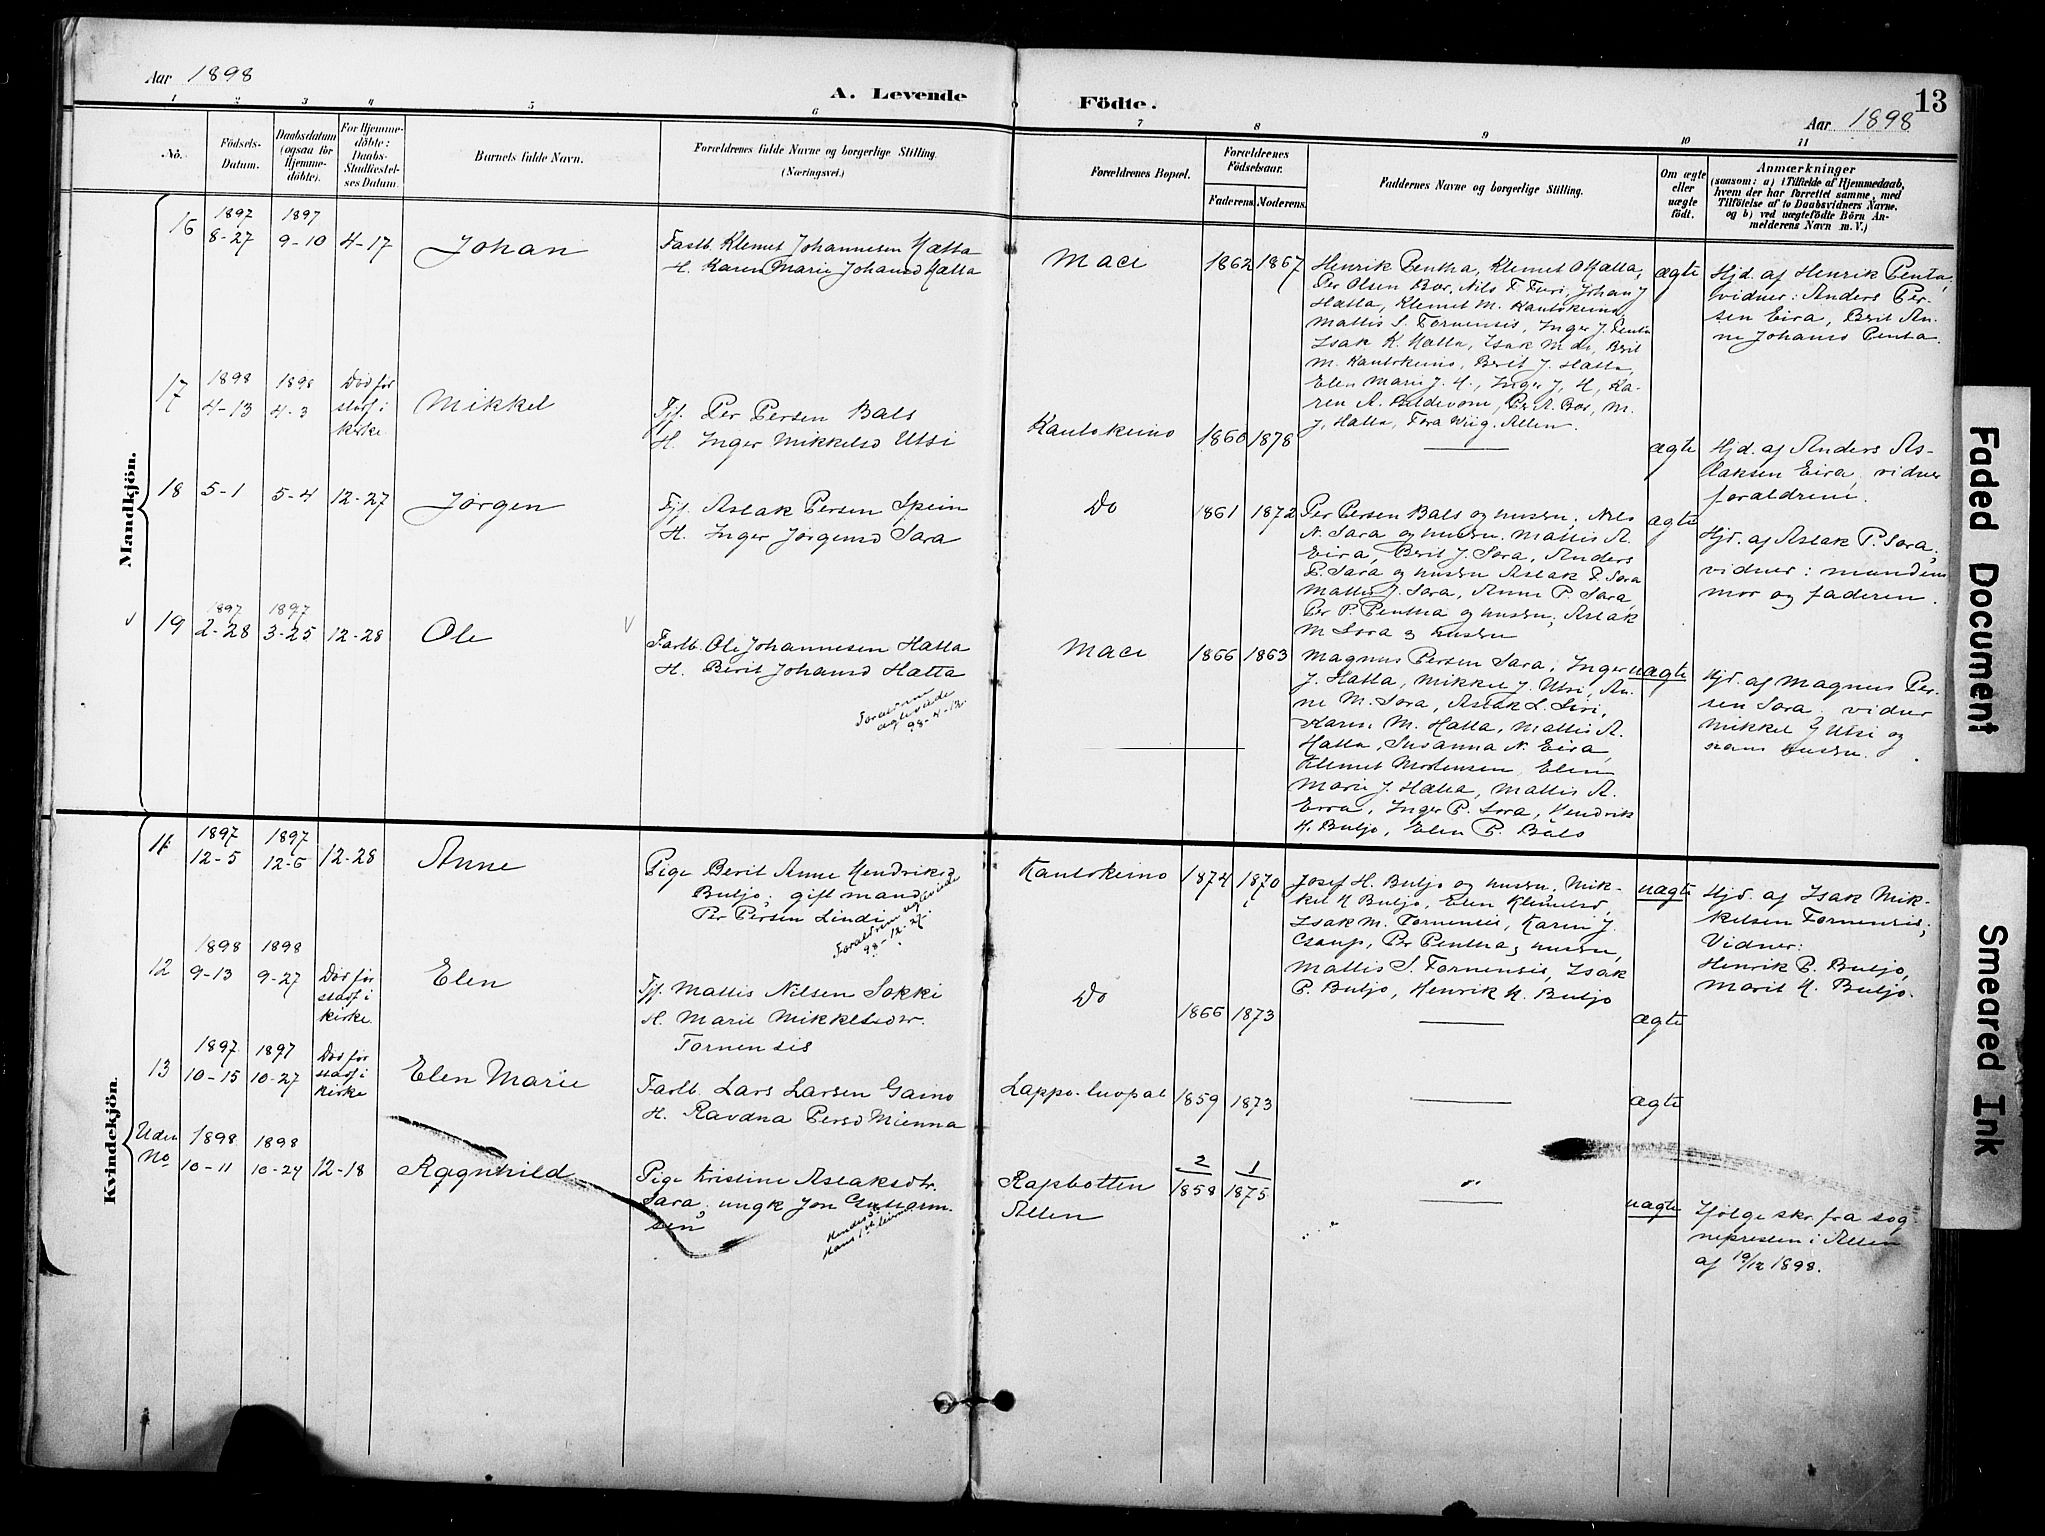 Aar 1898
A. Levende
Födte.
13
Aar 1898
1 2 3 4 5 6 7 8 9 10 11
No.
Födsels-
Datum.
Daabsdatum
(ogsaa for
Hjemme-
döbte).
For Hjemme-
döbte:
Daabs-
Stadfæstel-
ses Datum.
Barnets fulde Navn.
Forældrenes fulde Navne og borgerlige Stilling.
(Næringsvei.)
Forældrenes Bopæl.
Forældrenes
Födselsaar.
Faderens. Moderens.
Faddernes Navne og borgerlige Stilling.
Om ægte
eller
uægte
födt.
Anmærkninger
(saasom: a) i Tilfælde af Hjemmedaab,
hvem der har forrettet samme, med
Tilföielse af to Daabsvidners Navne.
og b) ved uægtefödte Börn An-
melderens Navn m. V.)
Mandkjön.
16
1897
8-27
1897
9-10
4-17
Johan
Fastb. Klemet Johannesen Hætta
H. Karen Marie Johansd Hætta
Mace
1862 1867
Henrik Pentha, Klemet O Hætta,
Per Olsen Bær, Nils T Turi, Johan J
Hætta, Klemet M. Kautokeino,
Mattis S. Tornensis, Inger J. Penta
Isak K. Hætta, Isak M do, Berit
M. Kautokeino, Berit J. Hatta,
Elen Marie J. H., Inger J. H, Ka-
ren A. Beldevom, Per A. Bær, M.
J. Hatta, Tora Wiig. Alten.
ægte
Hjd. af Henrik Penta,
vidner: Anders Per-
sen Eira, Berit An-
ne Johansd Penta
17
1898
4-13
1898
4-3
Död før
stadf i
kirke
Mikkel
Fjf. Per Persen Bals
H. Inger Mikkelsd Utsi
Kautokeino
1860 1878
ægte
Hjd. af Anders As-
laksen Eira, vidner
forældrene.
18
5-1
5-4
12-27
Jørgen
Fjf. Aslak Persen Spein
H. Inger Jørgensd Sara
Do
1861 1872
Per Persen Bals og hustru, Nils
N. Sara og hustru. Mattis A.
Eira, Berit J. Sara, Anders
P. Sara og hustru Aslak P. Sara
Mattis J. Sara, Anne P. Sara
Per P. Pentha og hustru, Aslak
M Sara og hustru
ægte
Hjd. af Aslak P. Sara,
vidner: mandens
mor og faderen.
19
1897
2-28
1897
3-25
12-28
Ole
Fastb. Ole Johannesen Hatta
H. Berit Johansd Hatta
Forældrene
agteviede
98-4-12.
Mace
1866 1863
Magnus Persen Sara, Inger
J. Hatta, Mikkel J. Utsi, An-
ne M. Sara, Aslak L. Siri,
Karen M. Hatta, Mattis A.
Hatta, Susanna N. Eira,
Klemet Mortensen, Elen
Marie J. Hætta, Mattis A.
Eira, Inger P. Sara, Hendrik
H. Buljo, Elen P. Bals
uægte
Hjd. af Magnus Per-
sen Sara, vidner
Mikkel J Utsi og
hans hustru.
Kvindekjön.
11
1897
12-5
1897
12-6
12-28
Anne
Pige Berit Anne Hendriksd
Buljo; gift mand
Per Persen Lindi
Forældrene agteviede
98-12-27.
Kautokeino
1874 1870
Josef H. Buljo og hustru, Mik-
kel H Buljo, Elen Klemetsd,
Isak M. Tornensis, Karen J.
Csaup, Per Pentha og hustru,
Mattis S. Tornensis, Isak
P. Buljo, Henrik H. Buljo
uægte
Hjd. af Isak Mik-
kelsen Tornensis;
Vidner:
Henrik P. Buljo,
Marit H. Buljo.
12
1898
9-13
1898
9-27
Död før
stadf i
kirke.
Elen
Fjf. Mattis Nilsen Sokki
H. Marie Mikkelsdtr.
Tornensis
Do
1866 1873
ægte
13
1897
10-15
1897
10-27
Död før
stadf i
kirke
Elen Marie
Fastb. Lars Larsen Gaino
H. Ravdna Persd Mienna
Lappoluopal
1859 1873
ægte
Uden
No
1898
10-11
1898
10-24
12-18
Ragnhild
Pige Kristine Aslaksdtr.
Sara, ungk Jon Guttorm-
sen
Rafsbotten
Alten
2
1858
1
1875
"
uægte
Ifølge skr. fra sog-
nepresten i Alten
af 19/12 1898.
Faded Document
Smeared Ink